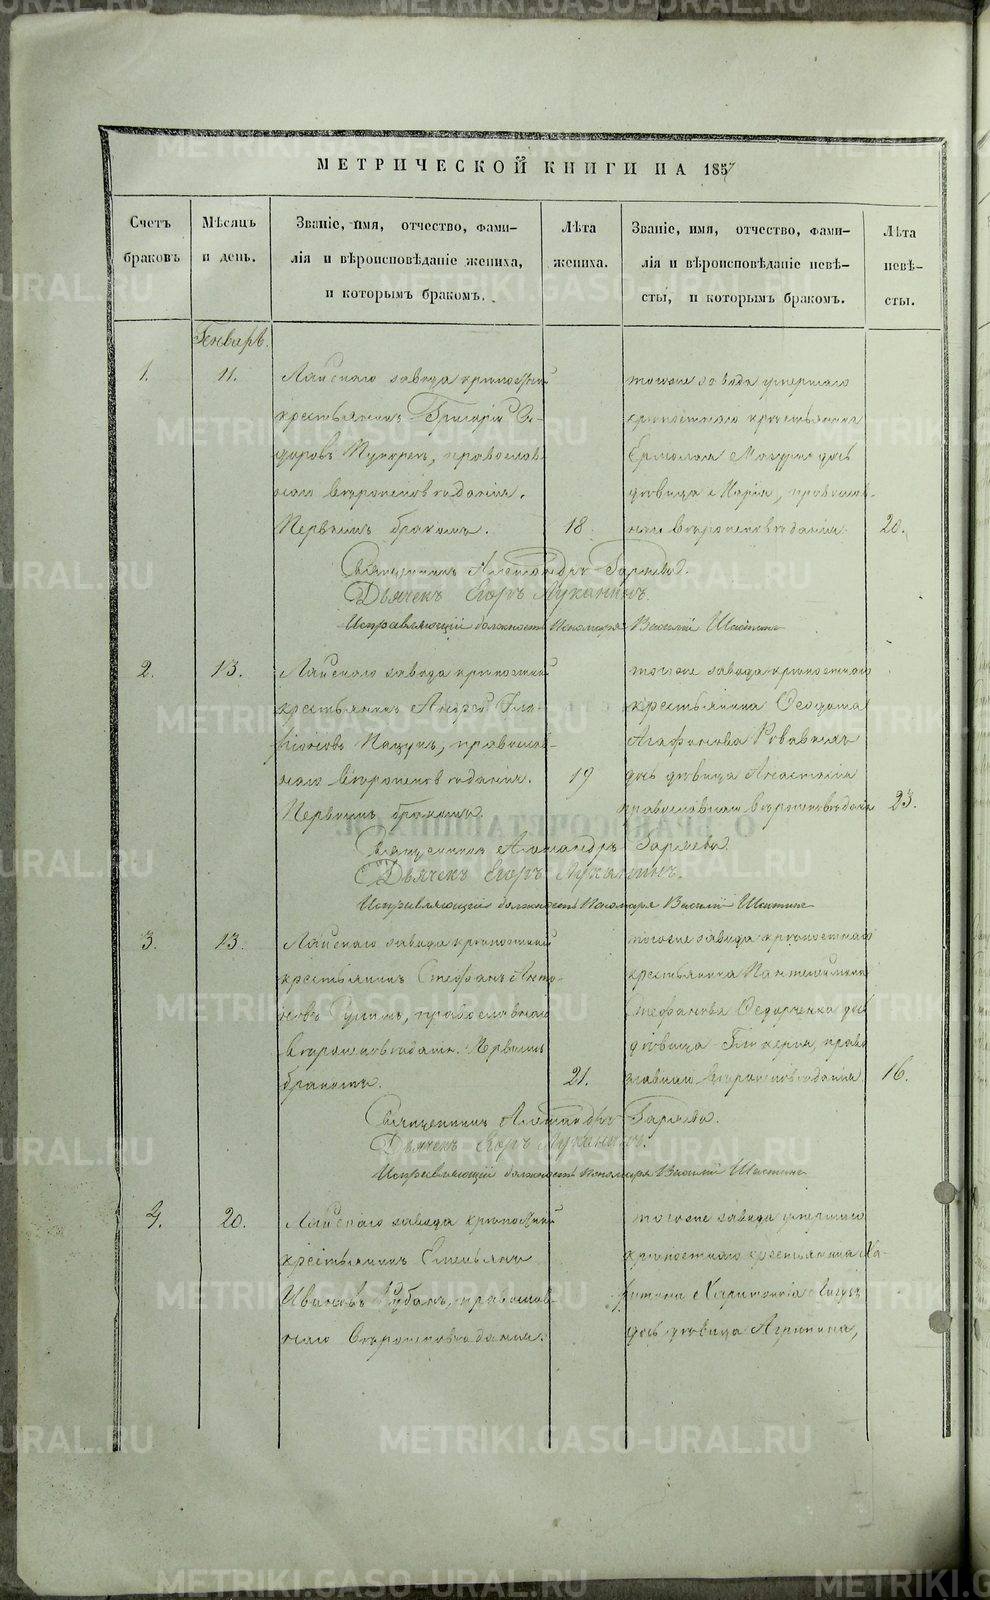 МЕТРИЧЕСКОЙ КНИГИ НА 1857
Счетъ браковъ
Мѣсяцъ и день.
Званіе, имя, отчество, фами-
лія и вѣроисповѣданіе жениха,
и которымъ бракомъ.
Лѣта
жениха.
Званіе, имя, отчество, фами-
лія и вѣроисповѣданіе невѣ-
сты, и которымъ бракомъ.
Лѣта
невѣ-
сты.
Генварь.
1.
11.
Лайскаго завода крѣпостный
крестьянинъ Григорій Ѳе-
доровъ православ-
наго вѣроисповѣданія.
Первымъ бракомъ.
18.
тогоже завода умершаго
крѣпостнаго крестьянина
Ермолая дочь
дѣвица Марія, православ-
наго вѣроисповѣданія.
20.
Священникъ Александръ Гаряевъ.
Дьячекъ Егоръ Луканинъ.
Исправляющій должность Пономаря Василій Шастинъ
2.
13.
Лайскаго завода крѣпостный
крестьянинъ Андрей
Пацукъ, православ-
наго вѣроисповѣданія.
Первымъ бракомъ.
19
тогоже завода крѣпостнаго
крестьянина Ѳеодота
Агафонова
дочь дѣвица Анастасія
православнаго вѣроисповѣдан.
23.
Священникъ Александръ Гаряевъ
Дьячекъ Егоръ Луканинъ.
Исправляющій должность Пономаря Василій Шастинъ
3.
13.
Лайскаго завода крѣпостный
крестьянинъ Стефанъ Анто-
новъ православнаго
вѣроисповѣданія. Первымъ
бракомъ.
21.
тогоже завода крѣпостнаго
крестьянина Пантелеймона
Стефанова Ѳедорченка дочь
дѣвица Гликерія, право-
славнаго вѣроисповѣданія.
16.
Священникъ Александръ Гаряевъ.
Дьячекъ Егоръ Луканинъ.
Исправляющій должность Пономаря Василій Шастинъ
4.
20.
Лайскаго завода крѣпостный
крестьянинъ Емельянъ
Ивановъ православ-
наго вѣроисповѣданія.
тогоже завода умершаго
крѣпостнаго крестьянина Ха-
ритона
дочь дѣвица Агрипина,
METRIKI.GASO-URAL.RU